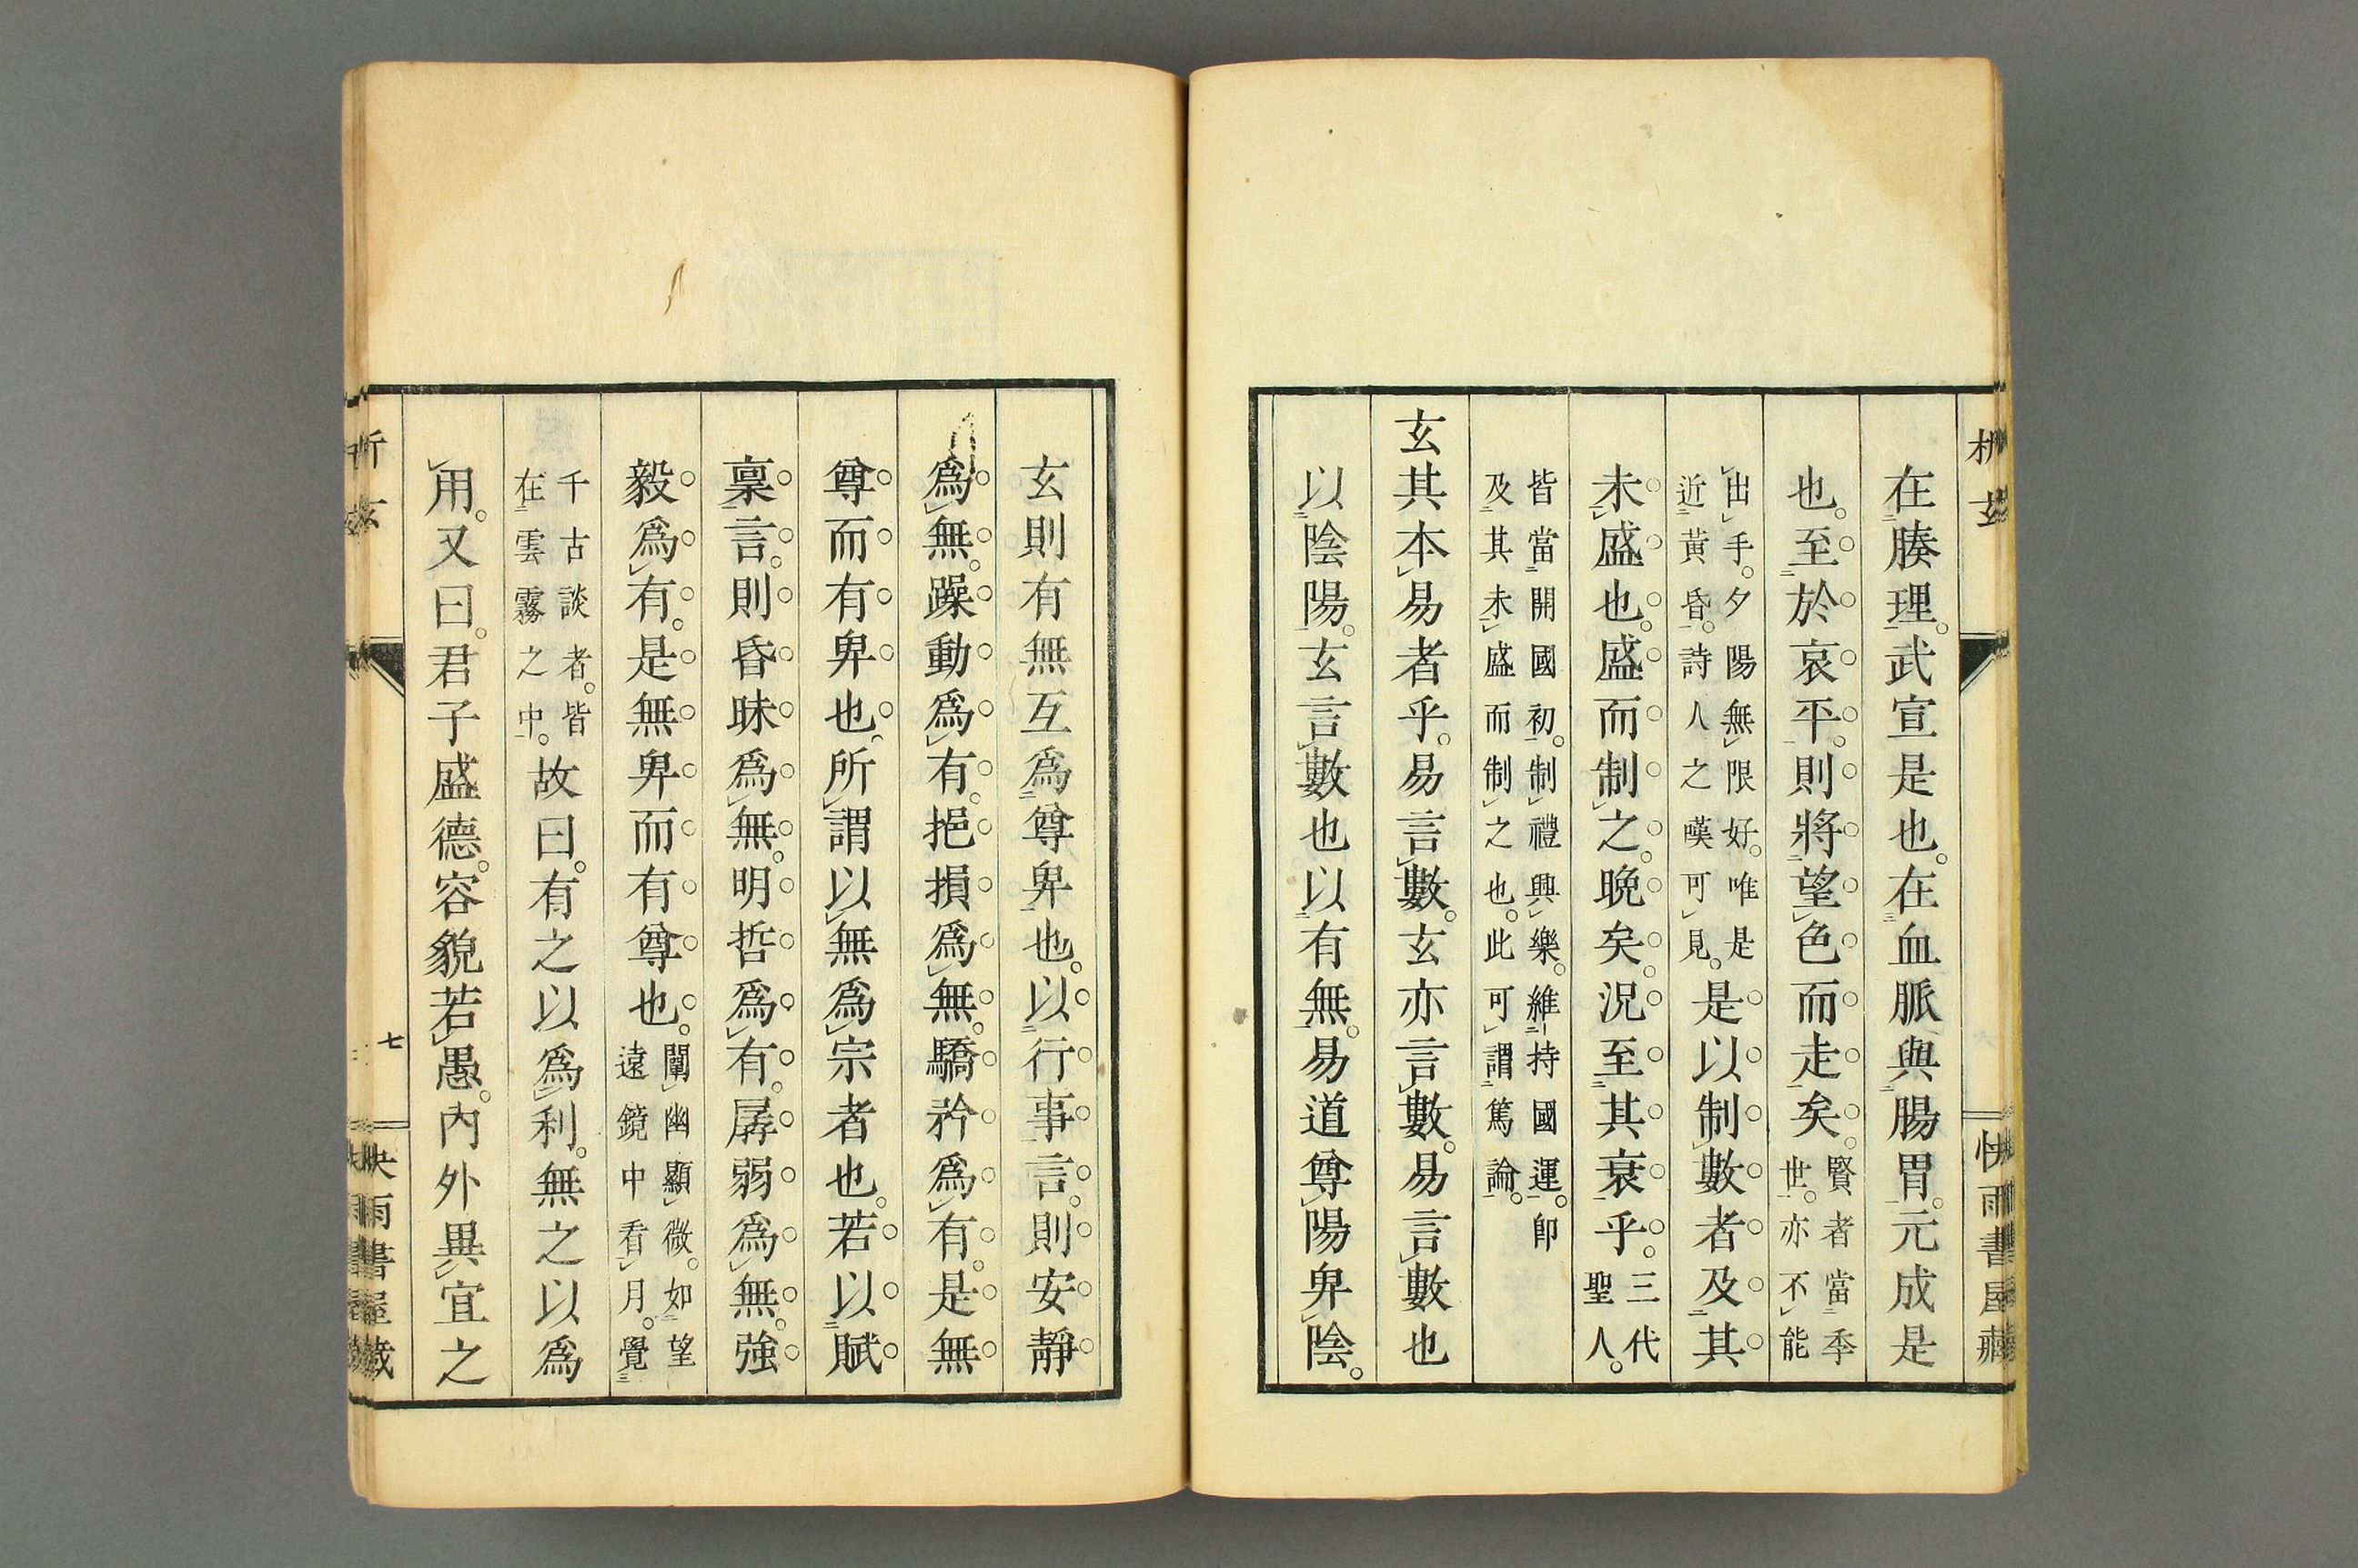 析玄
快雨書屋藏
在腠理。武宣是也。在血脈與腸胃。元成是
也。至於哀平。則將望色而走矣。賢者當季
世。亦不能
出手。夕陽無限好。唯是
近黃昏。詩人之嘆可見。是以制數者及其
未盛也。盛而制之。晚矣。況至其衰乎。三代
聖人。
皆當開國初。制禮興樂。維持國運。卽
及其未盛而制之也。此可謂篤論。
玄其本易者乎。易言數。玄亦言數。易言數也
以陰陽。玄言數也以有無。易道尊陽卑陰。
玄則有無互爲尊卑也。以行事言。則安靜
爲無。躁動爲有。挹損爲無。驕矜爲有。是無
尊而有卑也。所謂以無爲宗者也。若以賦
稟言。則昏昧爲無。明哲爲有。孱弱爲無。強
毅爲有。是無卑而有尊也。闡幽顯微。如望
遠鏡中看月。覺
千古談者。皆
在雲霧之中。故曰。有之以爲利。無之以爲
用。又曰。君子盛德。容貌若愚。內外異宜之
七